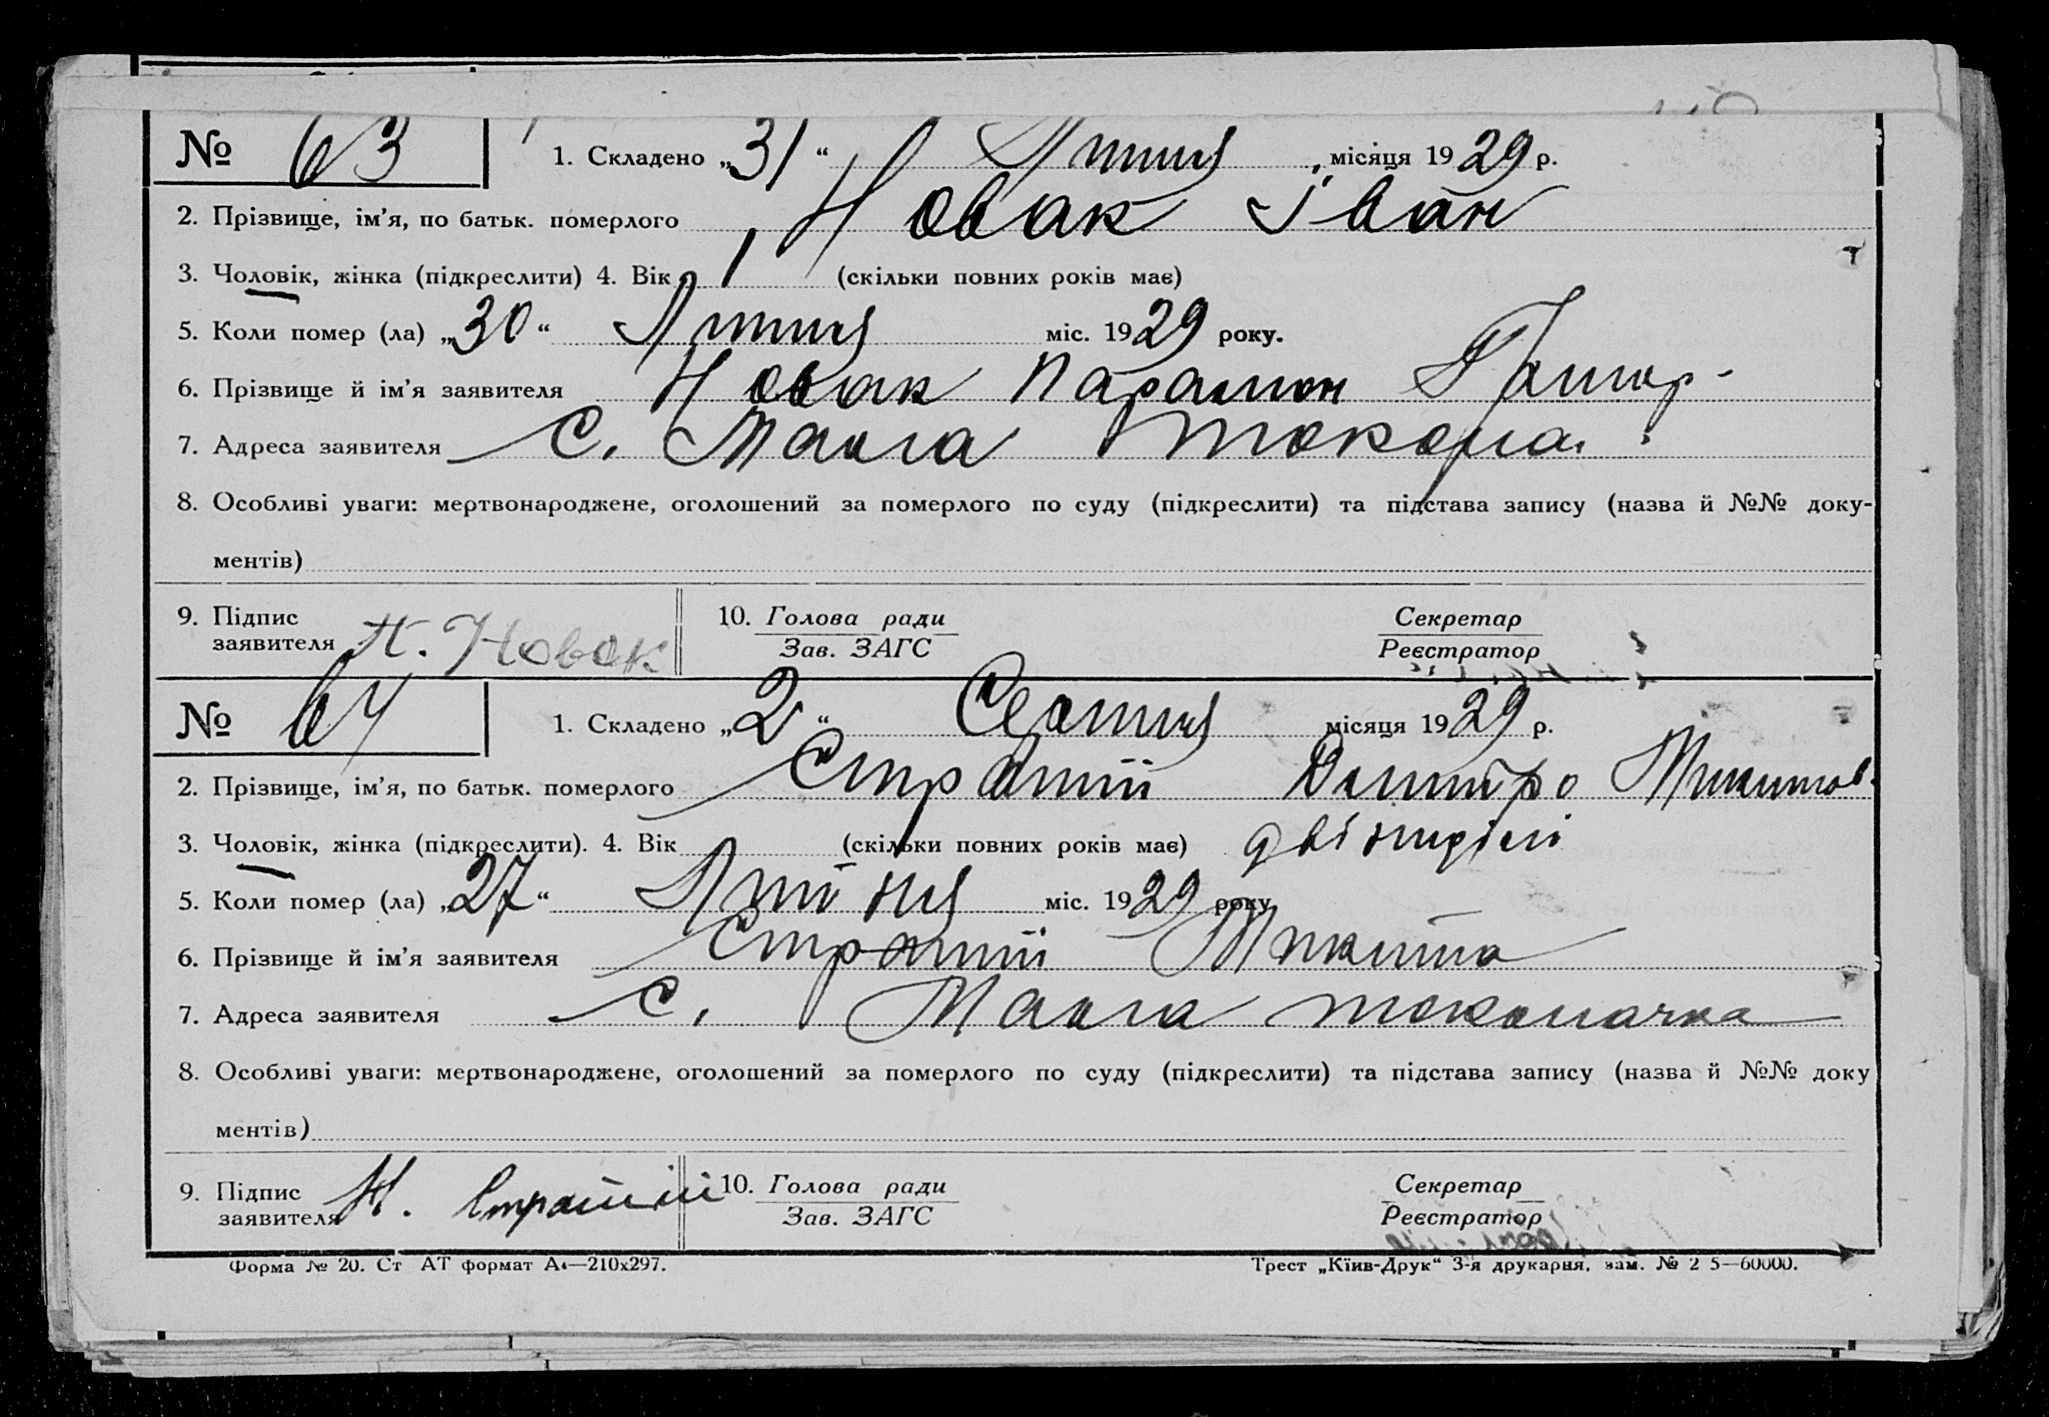 № 63 1. Складено „31“ Липня місяця 1929 р.
2. Прізвище, ім’я, по батьк. померлого Новак Іван
3. Чоловік, жінка (підкреслити) 4. Вік 1 (скільки повних років має)
5. Коли помер (ла) „30“ Липня міс. 1929 року.
6. Прізвище й ім’я заявителя Новак Парамон
7. Адреса заявителя с. Мала
8. Особливі уваги: мертвонароджене, оголошений за померлого по суду (підкреслити) та підстава запису (назва й №№ доку-
ментів)
9. Підпис заявителя П. Новак 10. Голова ради Секретар
Зав. ЗАГС Реєстратор
№ 64 1. Складено „2“ Серпня місяця 1929 р.
2. Прізвище, ім’я, по батьк. померлого Страшній Дмитро Микитов.
3. Чоловік, жінка (підкреслити). 4. Вік (скільки повних років має) дві неділі
5. Коли помер (ла) „27“ Липня міс. 1929 року
6. Прізвище й ім’я заявителя Страшній Микита
7. Адреса заявителя с. Мала Токмачка
8. Особливі уваги: мертвонароджене, оголошений за померлого по суду (підкреслити) та підстава запису (назва й №№ доку
ментів)
9. Підпис заявителя М. Страшній 10. Голова ради Секретар
Зав. ЗАГС Реєстратор
Форма № 20. Ст АТ формат А4—210х297. Трест „Київ-Друк“ 3-я друкарня, зам. № 2 5—60000.